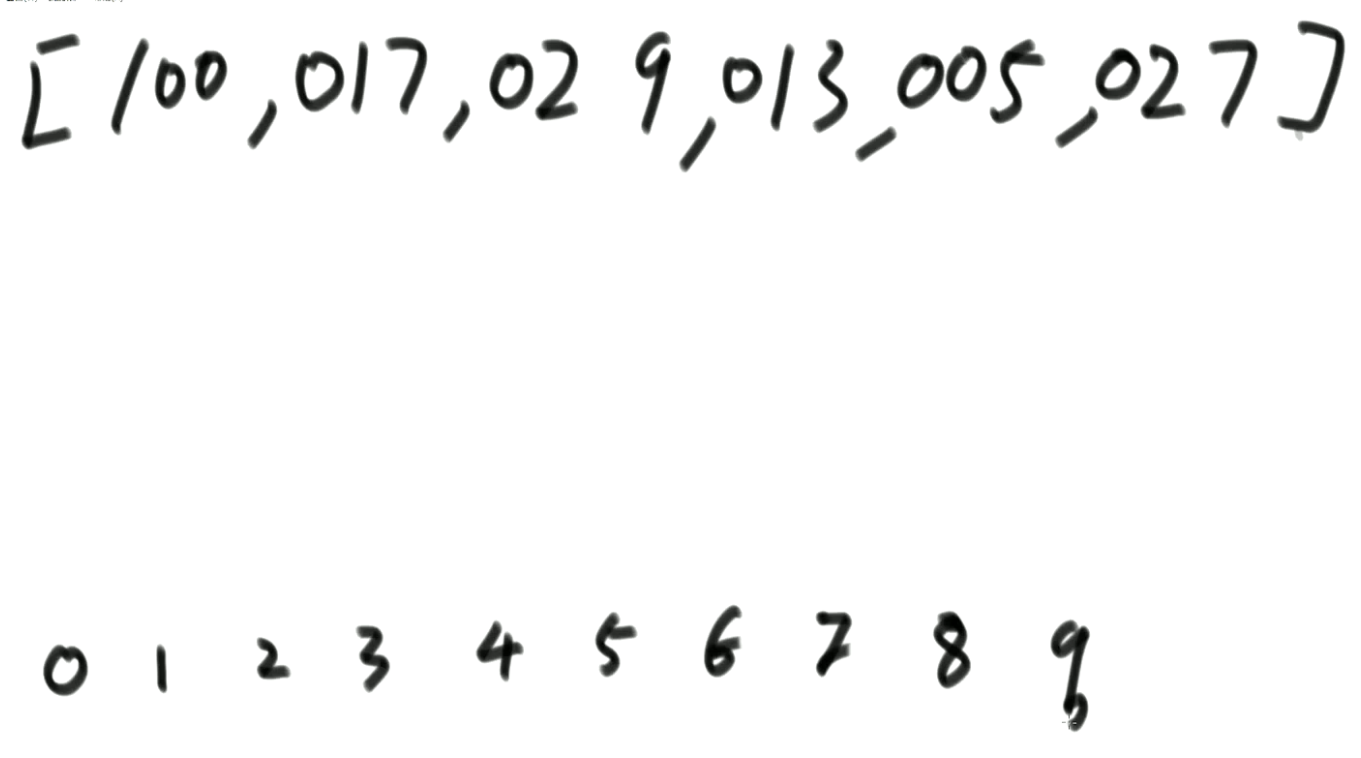 [100,017,029,013,005,027]
0 1 2 3 4 5 6 7 8 9